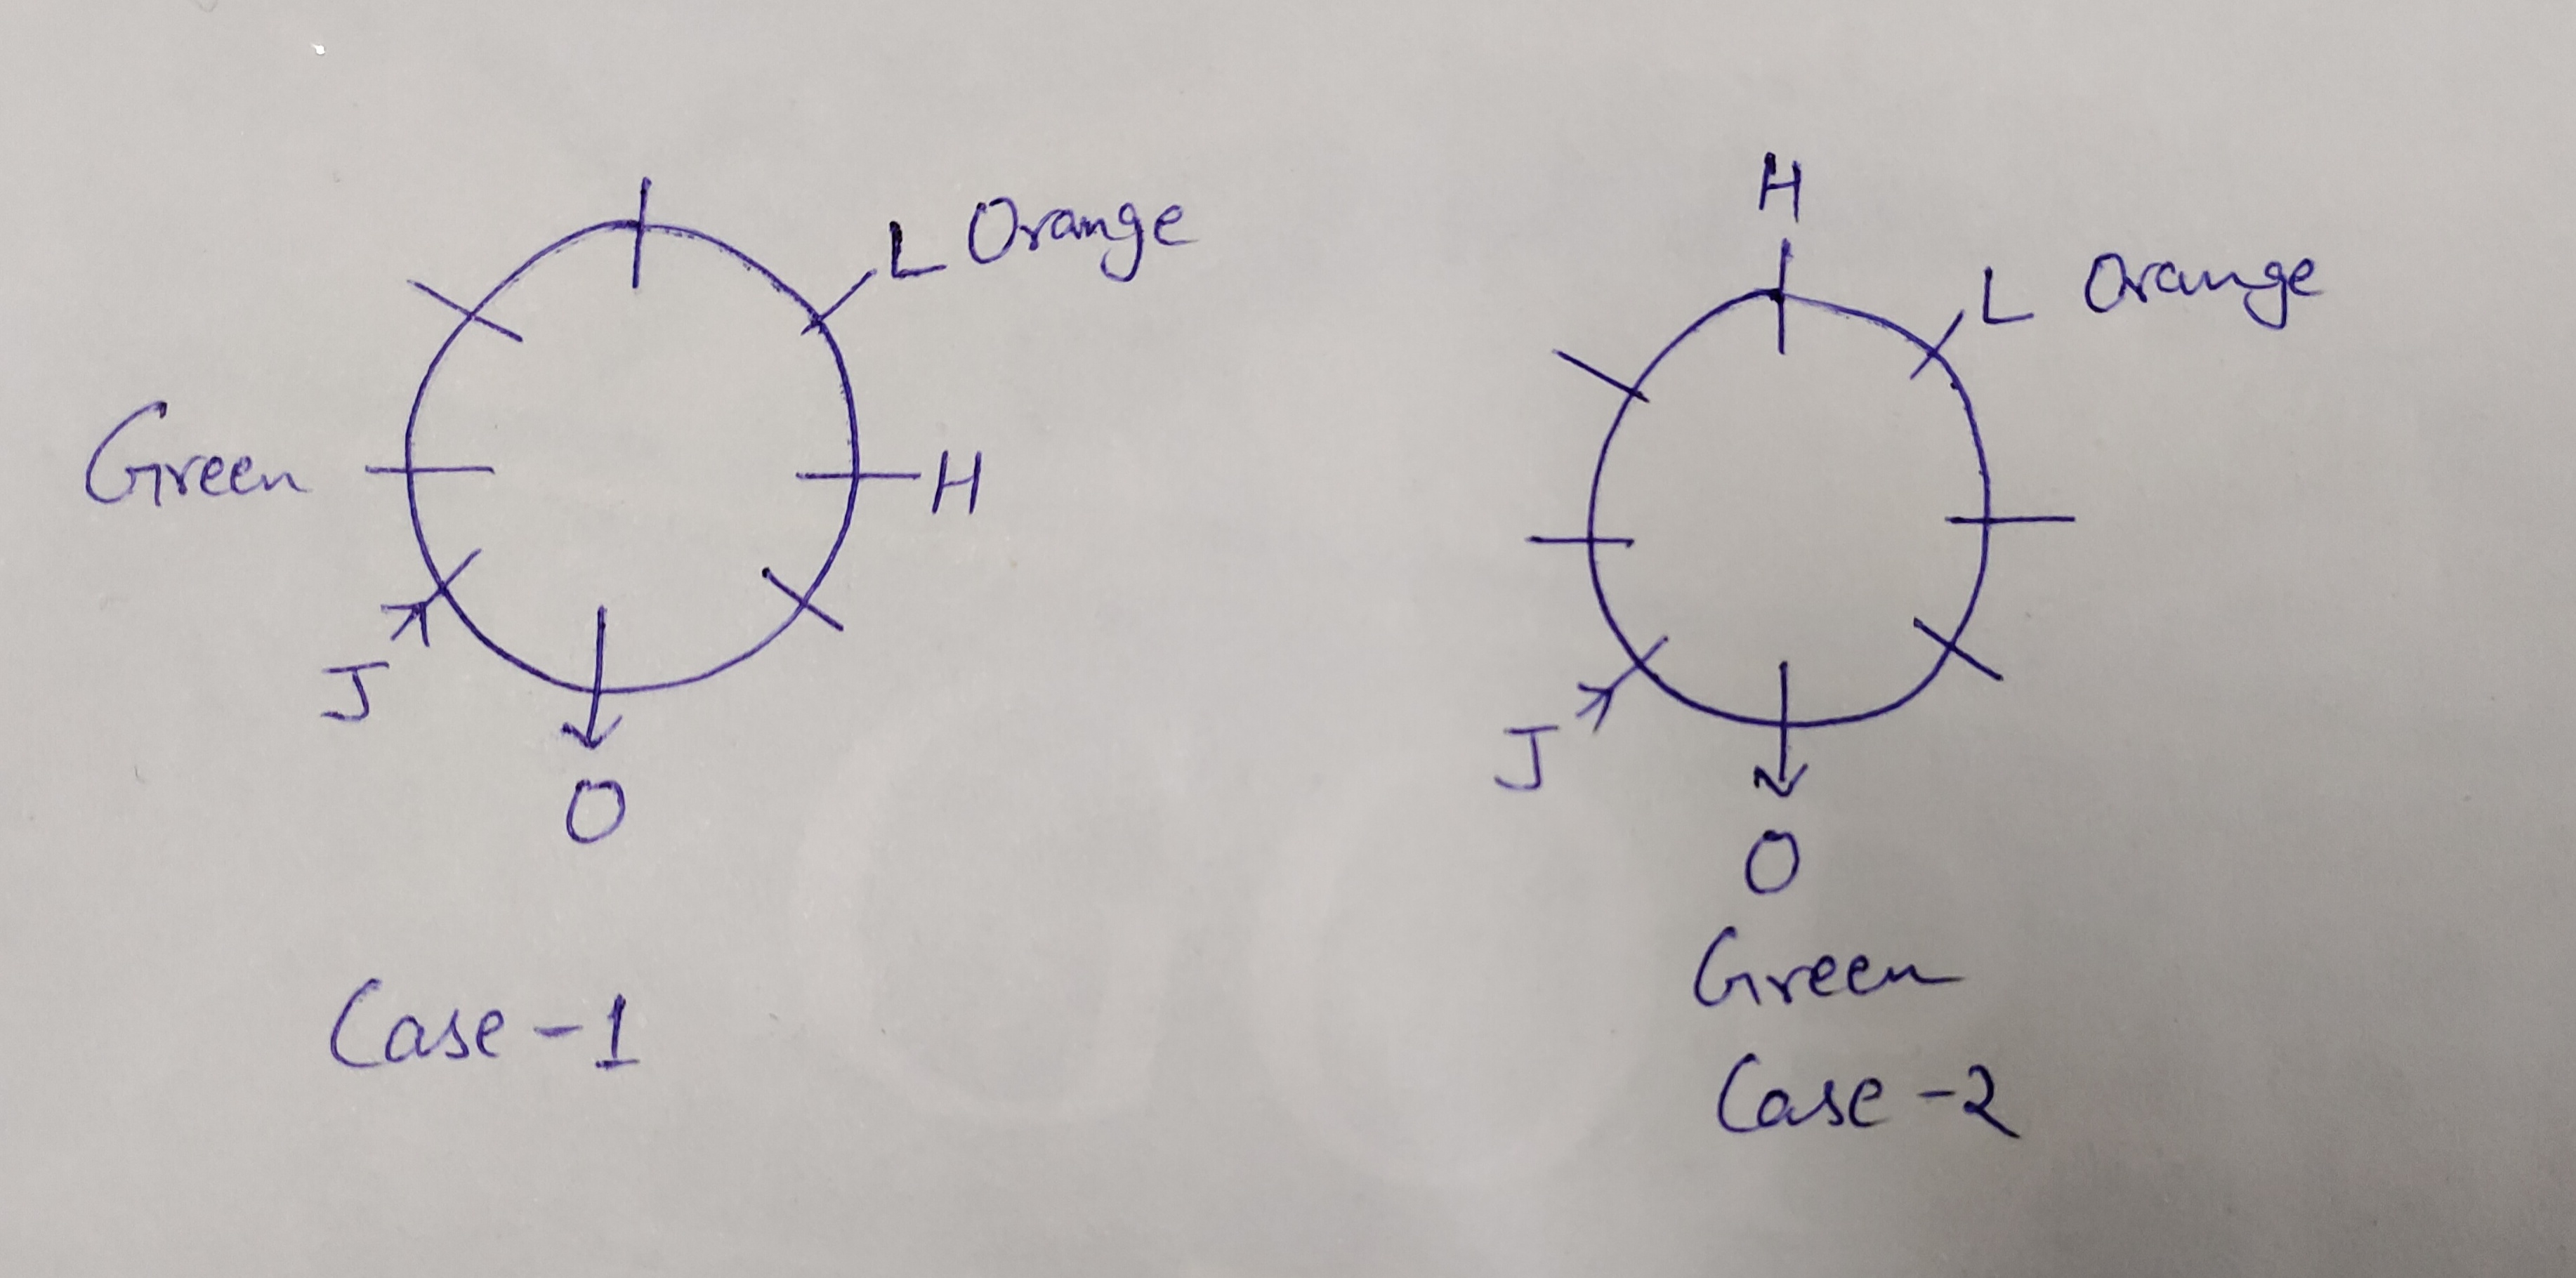 L Orange
Green
H
J
O
Case-1
H
L Orange
J
O
Green
Case-2